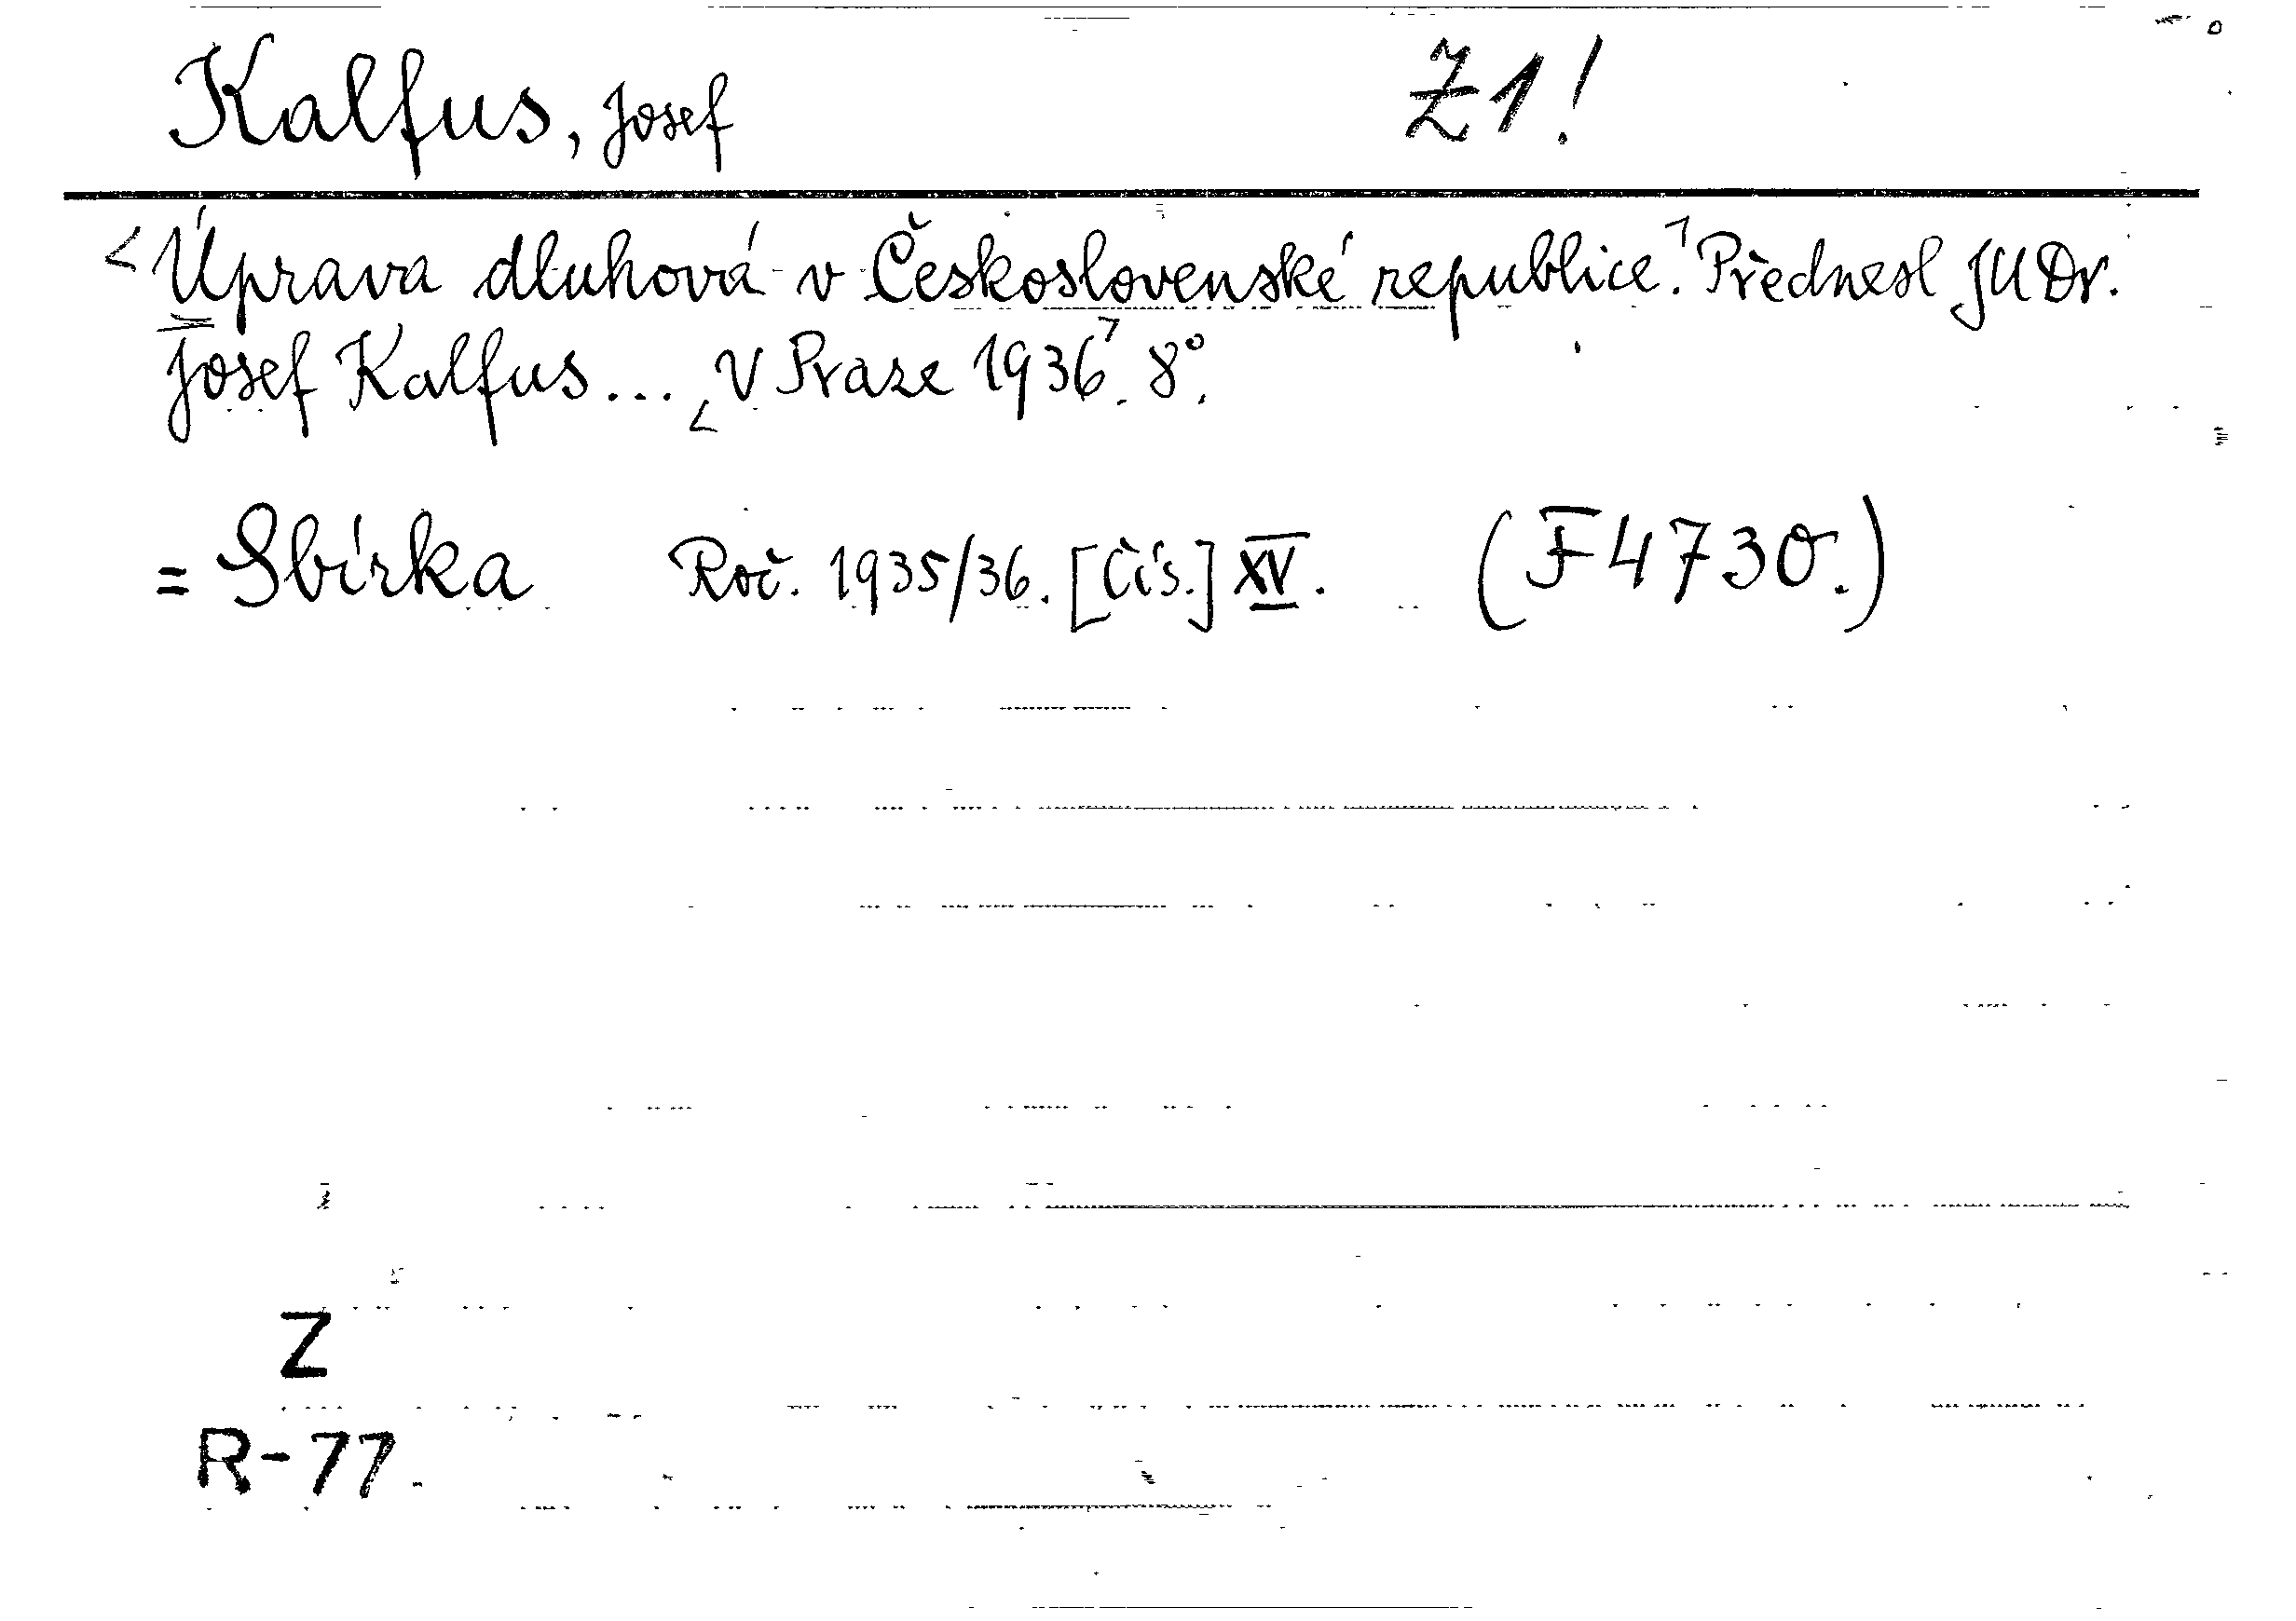 Kalfus, Josef Z1!
<Úprava dluhová v Československé republice.> Přednesl JUDr.
Josef Kalfus... <V Praze 1936>. 8°.
= Sbírka Roč. 1935/36. [Čís.] XV. (F4730.)
Z
R-77